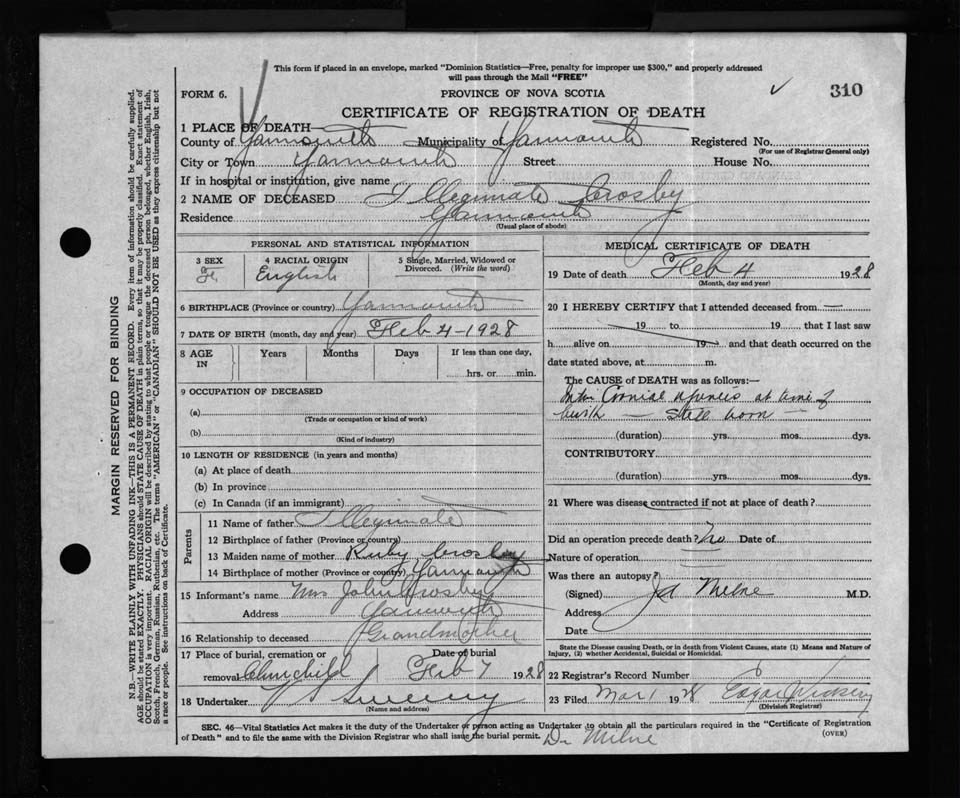 This form if placed in an envelope, marked "Dominion Statistics—Free, penalty for improper use $300," and properly addressed
will pass through the Mail "FREE"
FORM 6.
PROVINCE OF NOVA SCOTIA
310
CERTIFICATE OF REGISTRATION OF DEATH
1 PLACE OF DEATH
County of Yarmouth Municipality of Yarmouth Registered No.
(For use of Registrar General only)
City or Town Yarmouth Street House No.
If in hospital or institution, give name
2 NAME OF DECEASED Illegimate Crosby
Residence Yarmouth
(Usual place of abode)
PERSONAL AND STATISTICAL INFORMATION
3 SEX 4 RACIAL ORIGIN 5 Single, Married, Widowed or
Divorced. (Write the word)
Fe. English
6 BIRTHPLACE (Province or country) Yarmouth
7 DATE OF BIRTH (month, day and year) Feb 4-1928
8 AGE IN Years Months Days If less than one day,
hrs. or min.
9 OCCUPATION OF DECEASED
(a)
(Trade or occupation or kind of work)
(b)
(Kind of industry)
10 LENGTH OF RESIDENCE (in years and months)
(a) At place of death
(b) In province
(c) In Canada (if an immigrant)
Parents
11 Name of father Illegimate
12 Birthplace of father (Province or country)
13 Maiden name of mother Ruby Crosby
14 Birthplace of mother (Province or country) Yarmouth
15 Informant's name Mrs John Crosby
Address Yarmouth
16 Relationship to deceased Grandmother
17 Place of burial, cremation or Date of burial
removal Churchill Feb 7 1928
18 Undertaker Sweeny
(Name and address)
MEDICAL CERTIFICATE OF DEATH
19 Date of death Feb 4 1928
(Month, day and year)
20 I HEREBY CERTIFY that I attended deceased from
19 to 19, that I last saw
h alive on 19 and that death occurred on the
date stated above, at m.
The CAUSE OF DEATH was as follows:—
Intra Cranial injuries at time of
birth — Still born —
(duration) yrs. mos. dys.
CONTRIBUTORY
(duration) yrs. mos. dys.
21 Where was disease contracted if not at place of death?
Did an operation precede death? No Date of
Nature of operation
Was there an autopsy?
(Signed) Milne M.D.
Address
Date
State the Disease causing Death, or in death from Violent Causes, state (1) Means and Nature of
Injury, (2) whether Accidental, Suicidal or Homicidal.
22 Registrar's Record Number
23 Filed Mar 1 1928 Edgar
(Division Registrar)
SEC. 46—Vital Statistics Act makes it the duty of the Undertaker or person acting as Undertaker to obtain all the particulars required in the "Certificate of Registration
of Death" and to file the same with the Division Registrar who shall issue the burial permit.
(OVER)
Dr Milne
MARGIN RESERVED FOR BINDING
N.B.—WRITE PLAINLY WITH UNFADING INK—THIS IS A PERMANENT RECORD. Every item of information should be carefully supplied.
AGE should be stated EXACTLY. PHYSICIANS should STATE CAUSE OF DEATH in plain terms, so that it may be properly classified. Exact statement of
OCCUPATION is very important. RACIAL ORIGIN will be described by stating to what people or tongue the deceased person belonged, whether English, Irish,
Scotch, French, German, Russian, Ruthenian, etc. The terms "AMERICAN" or "CANADIAN" SHOULD NOT BE USED as they express citizenship but not
a race or people. See instructions on back of Certificate.